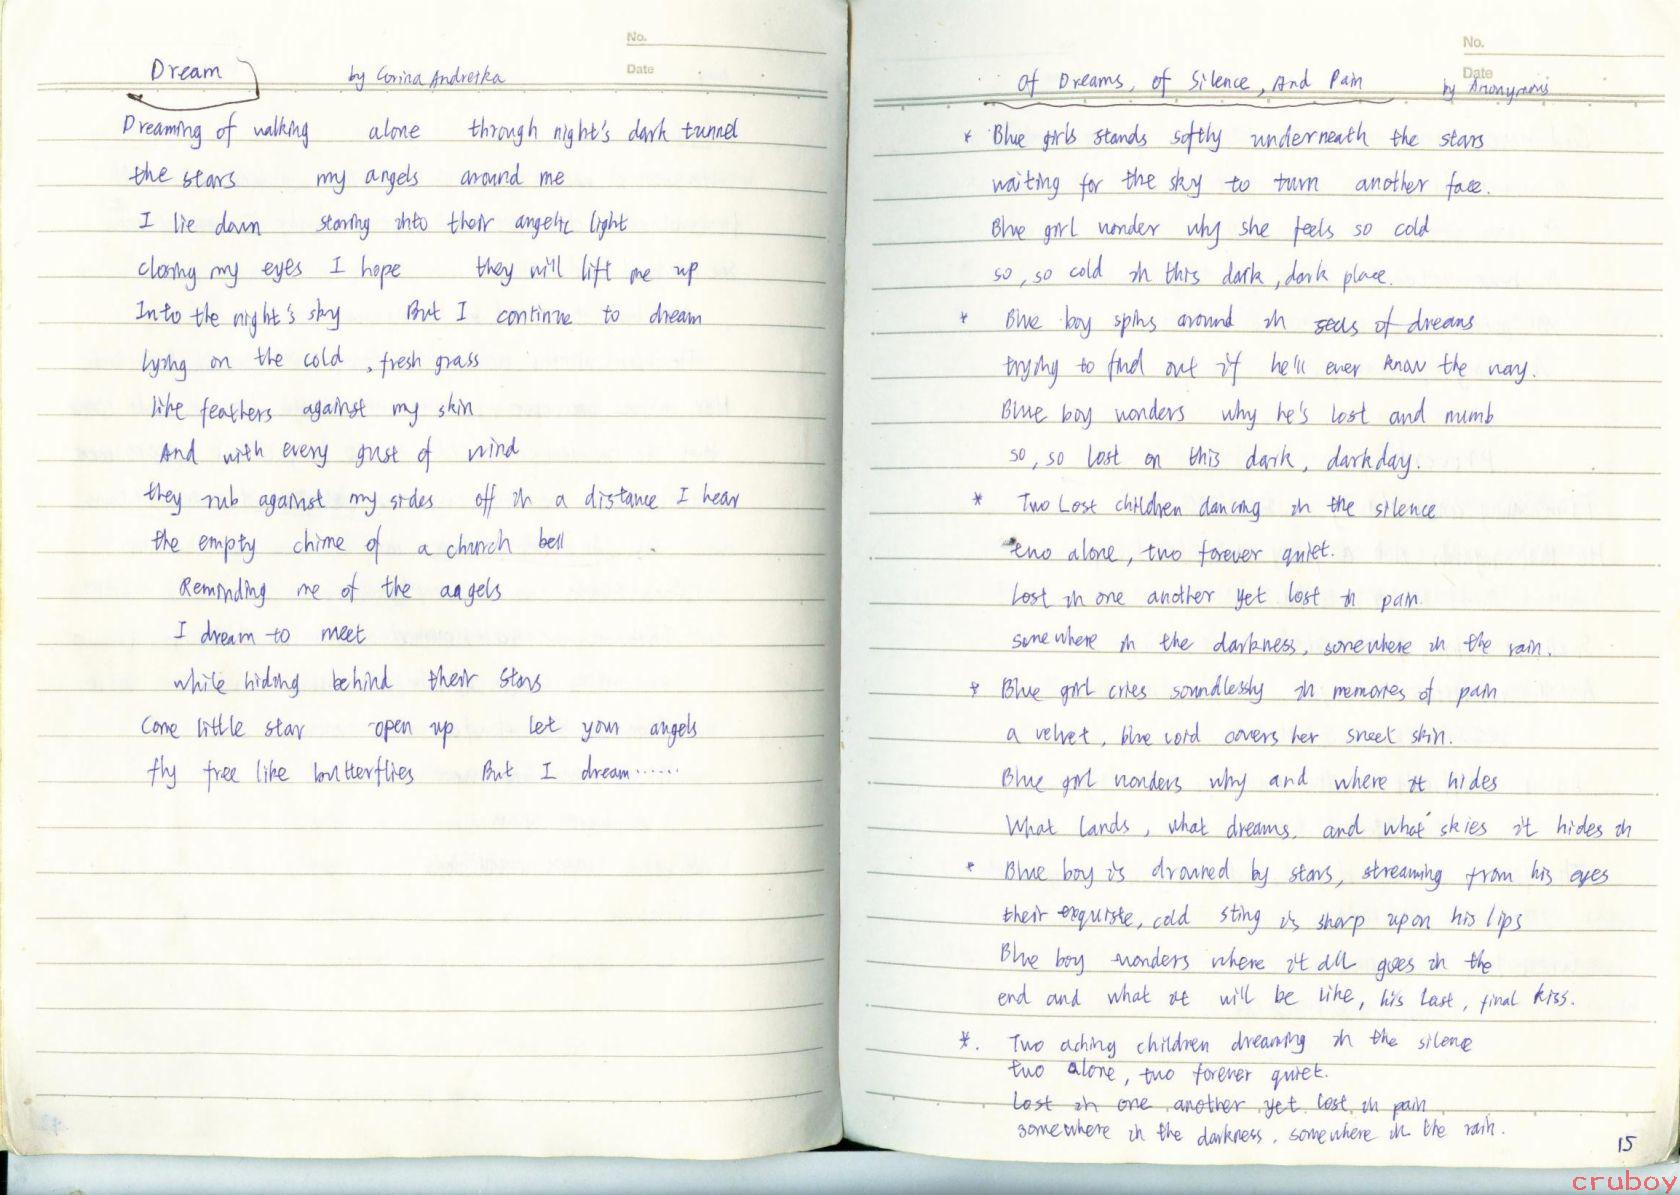 No.
Date
Dream by Corina Andretka
Dreaming of walking alone through night's dark tunnel
the stars my angels around me
I lie down staring into their angelic light
closing my eyes I hope they will lift me up
Into the night's sky But I continue to dream
lying on the cold, fresh grass
like feathers against my skin
And with every gust of wind
they rub against my sides off in a distance I hear
the empty chime of a church bell
Reminding me of the aagels
I dream to meet
while hiding behind their stars
Come little star open up let your angels
fly free like butterflies But I dream......
No.
Date
Of Dreams, of Silence, And Pain by Anonymous
* Blue girls stands softly underneath the stars
waiting for the sky to turn another face.
Blue girl wonder why she feels so cold
so, so cold in this dark, dark place.
* Blue boy spins around in of dreams
trying to find out if he'll ever know the way.
Blue boy wonders why he's lost and numb
so, so lost on this dark, dark day.
* Two Lost children dancing in the silence
two alone, two forever quiet.
Lost in one another yet lost in pain
somewhere in the darkness, somewhere in the rain.
* Blue girl cries soundlessly in memories of pain
a velvet, blue void covers her sweet skin.
Blue girl wonders why and where it hides
What lands, what dreams, and what skies it hides in
* Blue boy is drowned by stars, streaming from his eyes
their exquiste, cold sting is sharp upon his lips
Blue boy wonders where it all goes in the
end and what it will be like, his last, final kiss.
*. Two aching children dreaming in the silence
two alone, two forever quiet.
Lost in one another yet lost in pain
somewhere in the darkness, somewhere in the rain.
15
cruboy